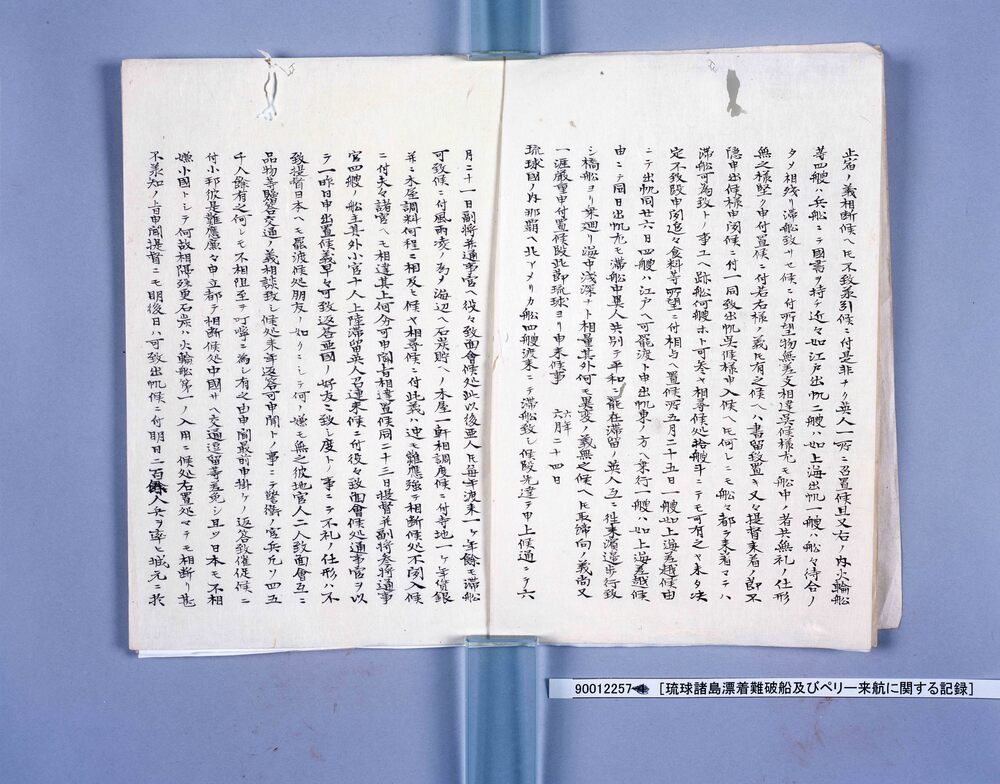 止宿ノ義相断候ヘ圧不致承引候ニ付是非ナク英人一所ニ召置候且又右ノ内火輪船
等四艘ハ兵船ニテ國書ヲ持チ近々如江戸出帆二艘ハ如上海出帆一艘ハ船々待合ノ
タメ相残リ滞船致サセ候ニ付所望物無差支相達呉候様尤モ船中ノ者共無礼ノ仕形
無之様堅ク申付置候ニ付若右様ノ義圧有之候ヘハ書留致置キ又々提督来着ノ節不
隠申出候様申聞候ニ付一同致出帆呉候様申入候ヘ圧何レニモ船々都テ来着マテハ
滞船可為致トノ事ユヘ跡船何艘ホト可参ヤ相尋候処拾艘斗ニテモ可有之ヤ未タ決
定不致段申聞追々食料等所望ニ付相与ヘ置候所五月二十五日一艘如上海差越候由
ニテ出帆同廿六日四艘ハ江戸ヘ可罷渡ト申出帆東ノ方ヘ乗行一艘ハ如上海差越候
由ニテ同日出帆尤モ滞船中異人共別テ平和ニ罷在滞留ノ英人互ニ往来濱邊歩行致
シ橋船ヨリ乗廻リ海中浅深ナト相量其外何モ異変ノ義無之候ヘ圧取締向ノ義尚又
一涯嚴重申付置候段此節琉球ヨリ申来候事
六月二十四日
琉球國ノ内那覇ヘ北アメリカ船四艘渡来ニテ滞船致シ候段先達テ申上候通ニテ六
月二十一日副将并通事官ヘ役々致面會候処此以後亜人圧毎年渡来一ヶ年餘モ滞船
可致候ニ付風雨凌ノ為メ海辺ヘ石炭貯ヘノ木屋一軒相調度候ニ付寺地一ヶ年賃銀
并ニ木屋調料何程ニ相及ヒ候ヤ相尋候ニ付此義ハ迚モ難應強テ相断候処不聞入候
ニ付夫々諸官ヘモ相達其上何分可申聞旨相達置候同二十三日提督并副将参将通事
官四艘ノ船主其外小官十人上陸滞留英人召連来候ニ付役々致面會候処通事官ヲ以
テ一昨日申出置候義早々可致返答並國ノ好友ニ致シ度トノ事ニテ不礼ノ仕形ハ不
致提督日本ヘモ罷渡候処朋友ノ如クニシテ何ノ嫌モ無之彼地官人二人致面會互ニ
品物等贈答交通ノ義相談致シ候処来年返答可申聞トノ事ニテ警衛ノ官兵凡ソ四五
千人餘有之何レモ不相阻至テ叮嚀ニ為シ有之由申聞最前申掛ケノ返答致催促候ニ
付小邦彼是難應廉々申立都テ相断候処中國サヘ交通逗留等差免シ且ツ日本モ不相
嫌小國トシテ何故相隔殊更石炭ハ火輪船第一ノ入用ニ候処右置処マテモ相断リ甚
不承知ノ旨申聞提督ニモ明後日ハ可致出帆候ニ付明日二百餘人兵ヲ率ヒ城元ニ於
90012257
[琉球諸島漂着難破船及びペリー来航に関する記録]